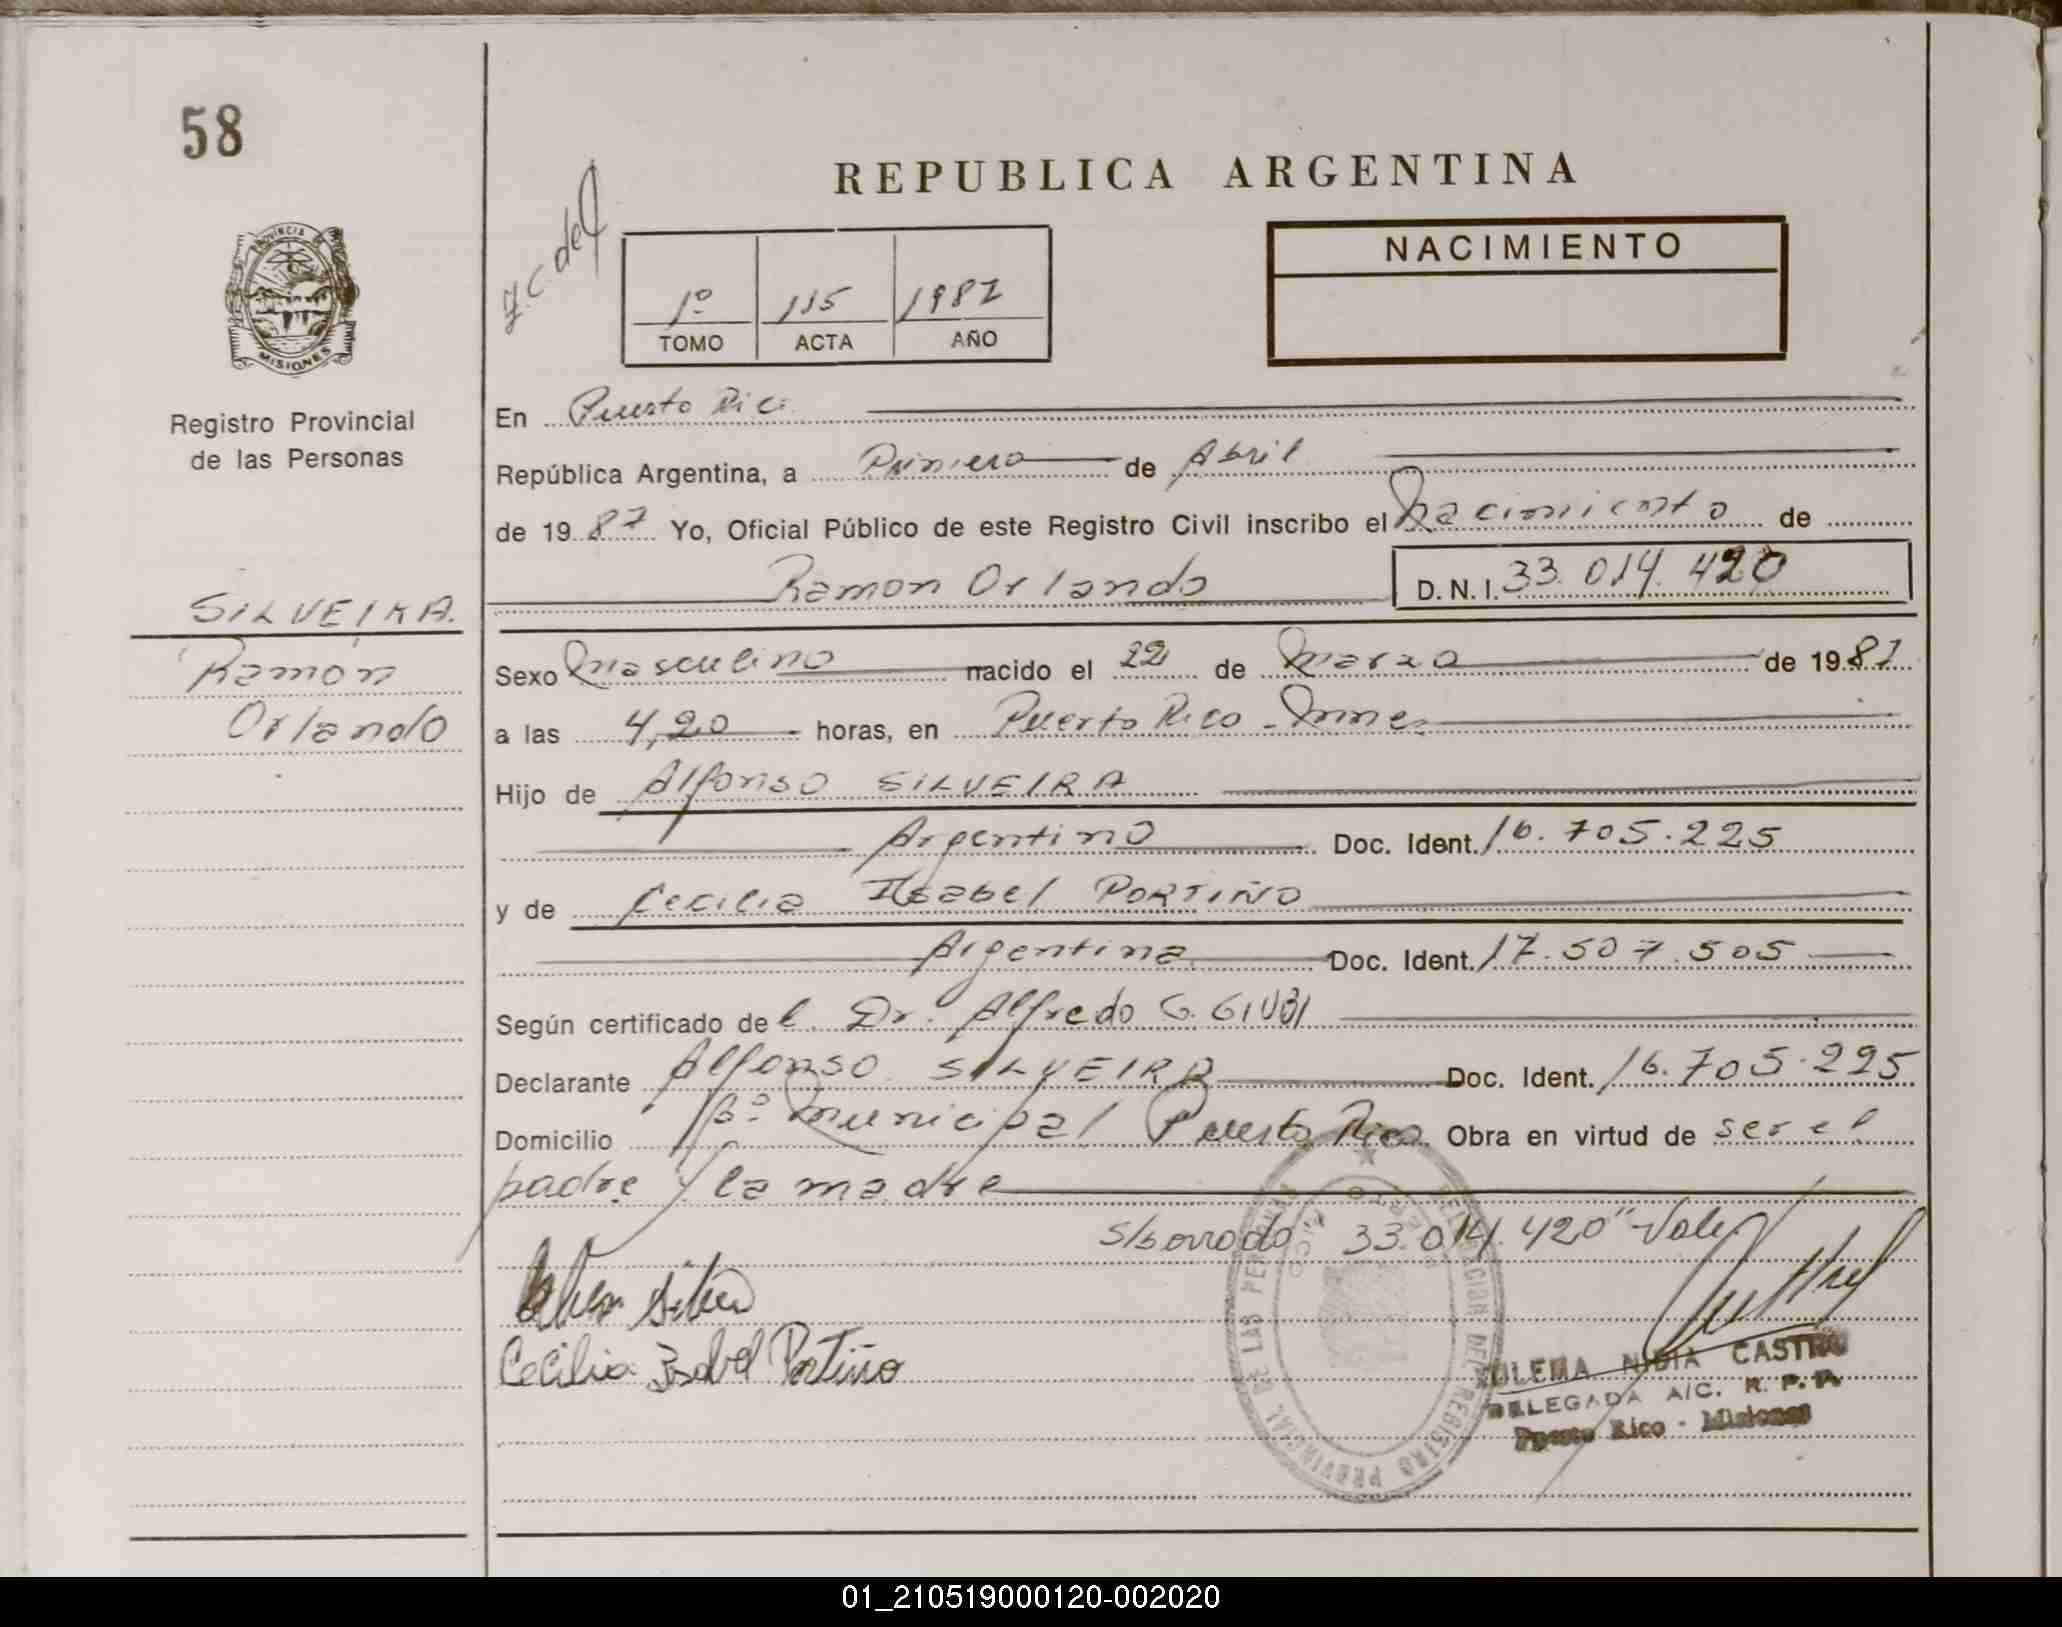 58
REPUBLICA ARGENTINA
PROVINCIA DE
MISIONES
1º 115 1987
TOMO ACTA AÑO
NACIMIENTO
Registro Provincial
de las Personas
SILVEIRA.
Ramón
Orlando
En Puerto Rico
República Argentina, a Primero de Abril
de 1987 Yo, Oficial Público de este Registro Civil inscribo el Nacimiento de
Ramon Orlando D.N.I. 33.014.420
Sexo Masculino nacido el 22 de Marzo de 1987
a las 4,20 horas, en Puerto Rico - Mnes
Hijo de Alfonso SILVEIRA
Argentino Doc. Ident. 16.705.225
y de Cecilia Isabel PORTIÑO
Argentina Doc. Ident. 17.507.505
Según certificado del Dr. Alfredo G. GIUBI
Declarante Alfonso SILVEIRA Doc. Ident. 16.705.225
Domicilio Bº Municipal Puerto Rico Obra en virtud de ser el
padre y la madre
S/borrado 33.014.420" Vale
Cecilia Isabel Portiño
DELEGACION DEL REGISTRO PROVINCIAL DE LAS PERSONAS
PUERTO RICO
NIDIA CASTRO
DELEGADA A/C. R. P. P.
Puerto Rico - Misiones
01_210519000120-002020